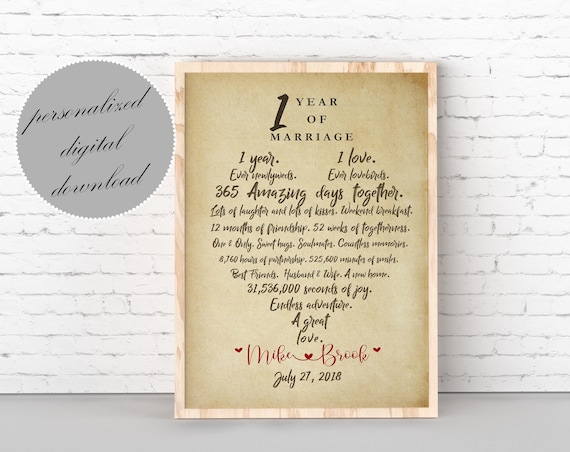 personalized
digital
download
1 YEAR
OF
MARRIAGE
1 year. 1 love.
Ever newlyweds. Ever lovebirds.
365 Amazing days together.
Lots of laughter and lots of kisses. Weekend breakfast.
12 months of friendship. 52 weeks of togetherness.
One & Only. Sweet hugs. Soulmates. Countless memories.
8,760 hours of partnership. 525,600 minutes of smiles.
Best Friends. Husband & Wife. A new home.
31,536,000 seconds of joy.
Endless adventure.
A great
love.
Mike Brook
July 27, 2018